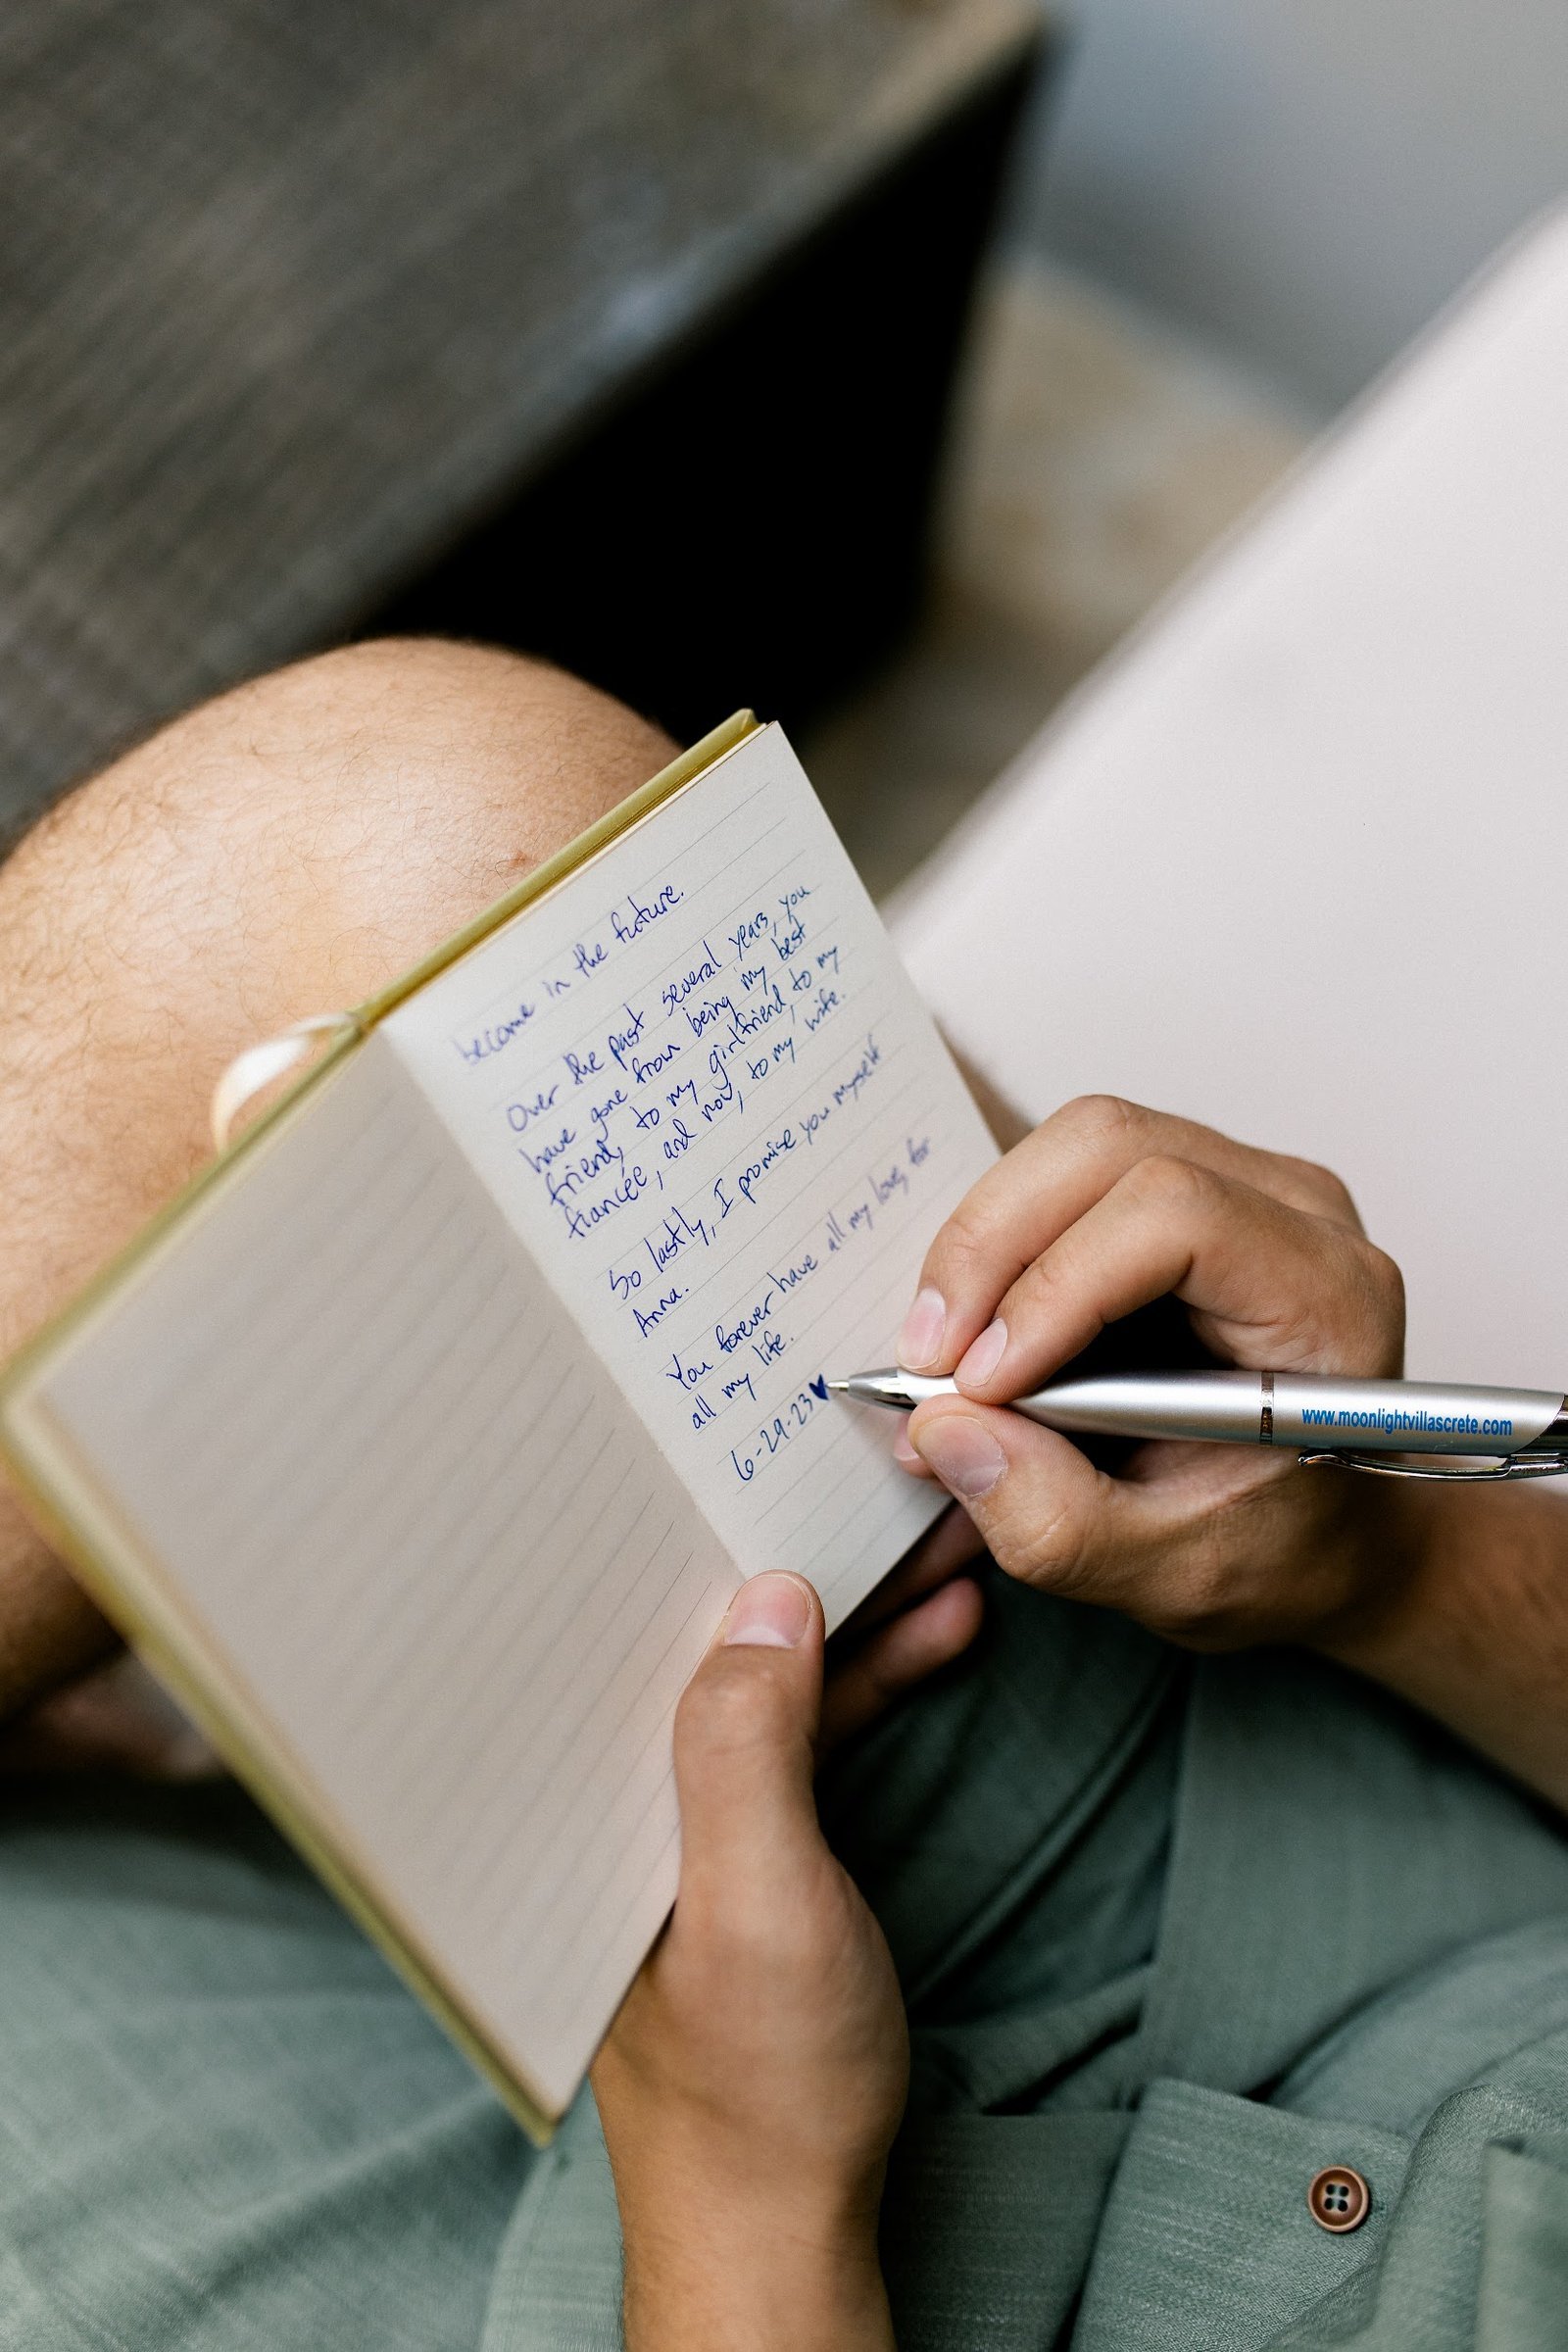 become in the future.
Over the past several years, you
have gone from being my best
friend, to my girlfriend, to my
fiancée, and now, to my wife.
So lastly, I promise you myself
Anna.
You forever have all my love, for
all my life.
6-29-23 ♥
www.moonlightvillascrete.com